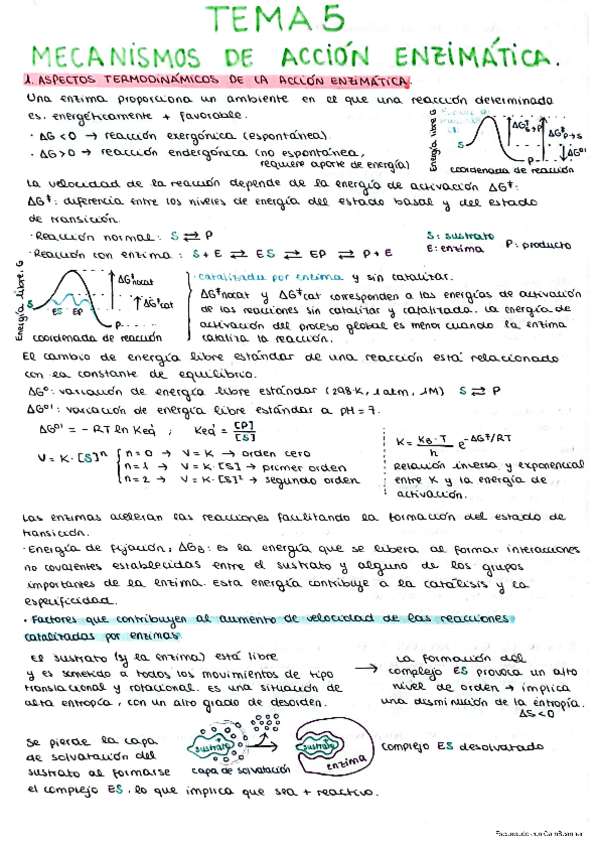 TEMA 5
MECANISMOS DE ACCIÓN ENZIMÁTICA.
1. ASPECTOS TERMODINÁMICOS DE LA ACCIÓN ENZIMÁTICA.
Una enzima proporciona un ambiente en el que una reacción determinada
es energéticamente + favorable.
· ΔG < 0 → reacción exergónica (espontánea)
· ΔG > 0 → reacción endergónica (no espontánea,
requiere aporte de energía)
Energía libre G
S
P
ΔG‡S→P
ΔG‡P→S
ΔG°'
coordenada de reacción
La velocidad de la reacción depende de la energía de activación ΔG‡:
ΔG‡: diferencia entre los niveles de energía del estado basal y del estado
de transición.
· Reacción normal: S ⇄ P
· Reacción con enzima: S + E ⇄ ES ⇄ EP ⇄ P + E
S: sustrato
E: enzima
P: producto
Energía libre, G
S
ES EP
P
ΔG‡nocat
ΔG‡cat
coordenada de reacción
· catalizada por enzima y sin catalizar.
ΔG‡nocat y ΔG‡cat corresponden a las energías de activación
de las reacciones sin catalizar y catalizada. La energía de
activación del proceso global es menor cuando la enzima
cataliza la reacción.
El cambio de energía libre estándar de una reacción está relacionado
con la constante de equilibrio.
ΔG°: variación de energía libre estándar (298·K, 1atm, 1M) S ⇄ P
ΔG°': variación de energía libre estándar a pH = 7.
ΔG°' = - RT ln Keq ; Keq = [P]/[S]
V = K · [S]ⁿ
n = 0 → V = K → orden cero
n = 1 → V = K · [S] → primer orden
n = 2 → V = K · [S]² → segundo orden
K = KB · T / h e^-ΔG‡/RT
Relación inversa y exponencial
entre K y la energía de
activación.
Las enzimas aceleran las reacciones facilitando la formación del estado de
transición.
· Energía de fijación, ΔGB: es la energía que se libera al formar interacciones
no covalentes establecidas entre el sustrato y alguno de los grupos
importantes de la enzima. Esta energía contribuye a la catálisis y la
especificidad.
· Factores que contribuyen al aumento de velocidad de las reacciones
catalizadas por enzimas
El sustrato (y la enzima) está libre
y es sometido a todos los movimientos de tipo
translacional y rotacional. Es una situación de
alta entropía, con un alto grado de desorden.
→ La formación del
complejo ES provoca un alto
nivel de orden → implica
una disminución de la entropía.
ΔS < 0
Se pierde la capa
de solvatación del
sustrato al formarse
el complejo ES, lo que implica que sea + reactivo.
sustrato
capa de solvatación
sustrato
enzima
complejo ES desolvatado
Escaneado con CamScanner